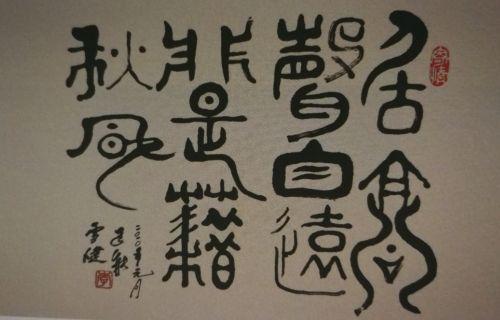 居高
聲自遠
非是藉
秋風
二〇〇五年元月
雪健